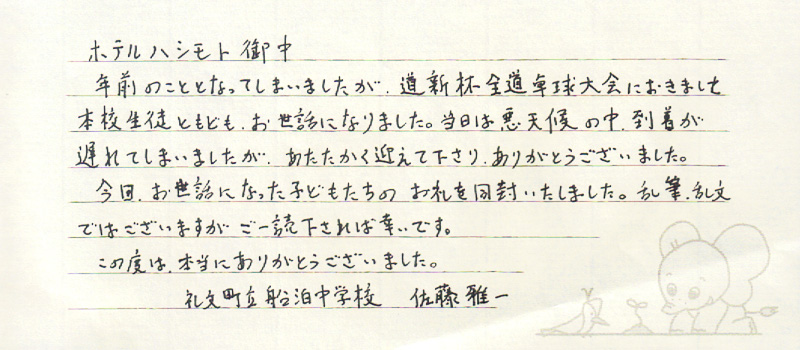 ホテルハシモト御中
年前のこととなってしまいましたが、道新杯全道卓球大会におきまして
本校生徒ともども、お世話になりました。当日は悪天候の中、到着が
遅れてしまいましたが、あたたかく迎えて下さり、ありがとうございました。
今回、お世話になった子どもたちのお礼を同封いたしました。乱筆、乱文
ではございますがご一読下されば幸いです。
この度は、本当にありがとうございました。
礼文町立船泊中学校 佐藤雅一